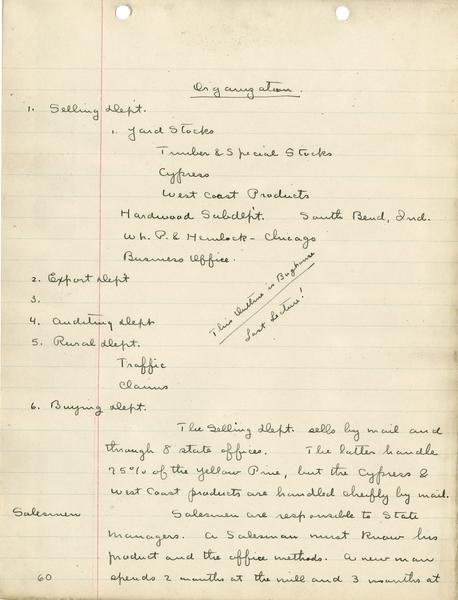 Organization.
1. Selling Dept.
1. Yard Stocks
Timber & Special Stocks
Cypress
West Coast Products
Hardwood Subdept. South Bend, Ind.
Wh. P. & Hemlock - Chicago
Business Office.
2. Export Dept
3.
4. Auditing Dept
5. Rural Dept.
Traffic
Claims
6. Buying Dept.
This Outline is Bughouse
Last Lecture!
The Selling Dept. sells by mail and
through 8 state offices. The latter handle
75% of the Yellow Pine, but the Cypress &
West Coast products are handled cheifly by mail.
Salesmen
Salesmen are responsible to State
Managers. A Salesman must know his
product and the office methods. A new man
spends 2 months at the mill and 3 months at
60